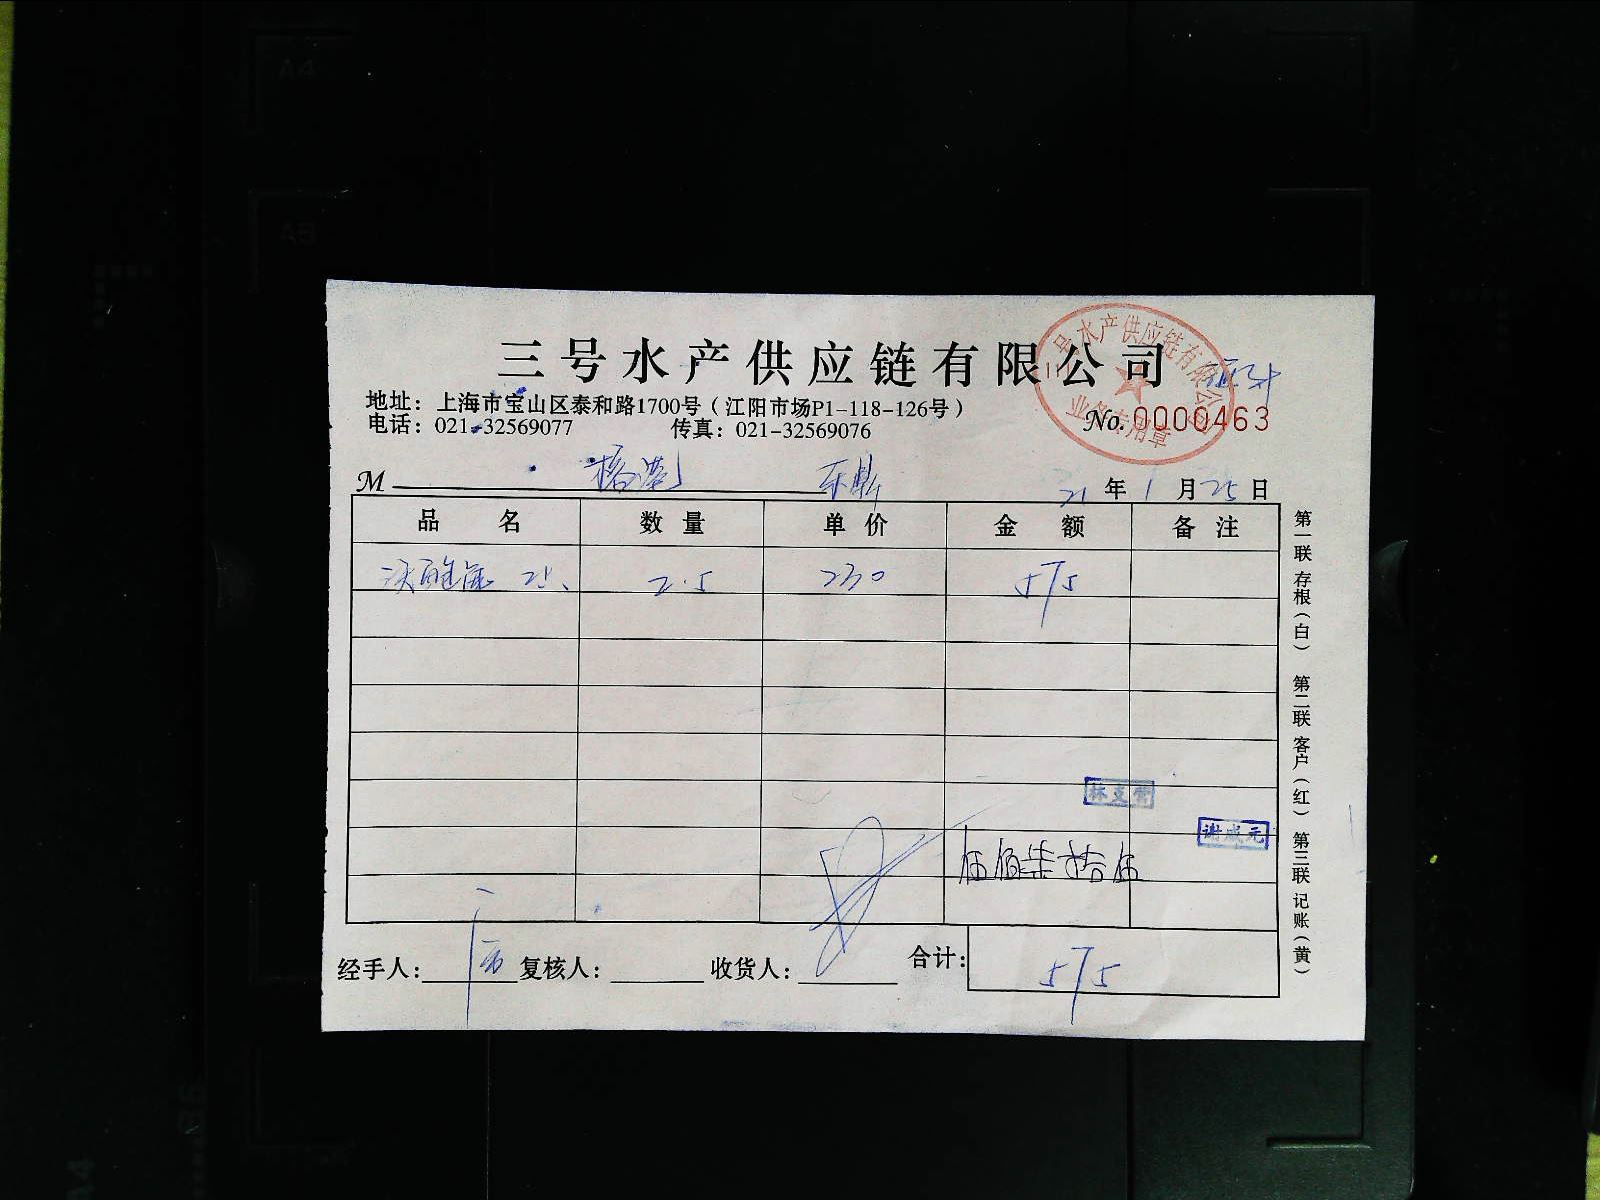 三号水产供应链有限公司
三号水产供应链有限公司
业务专用章
地址：上海市宝山区泰和路1700号（江阳市场P1-118-126号）
No.0000463
电话：021-32569077 传真：021-32569076
M 榕港 东鼎 21年1月25日
品名 数量 单价 金额 备注
2.5 230 575
谢咸元
伍佰柒拾伍
经手人： 复核人： 收货人： 合计：575
第一联 存根（白） 第二联 客户（红） 第三联 记账（黄）
A4
A5